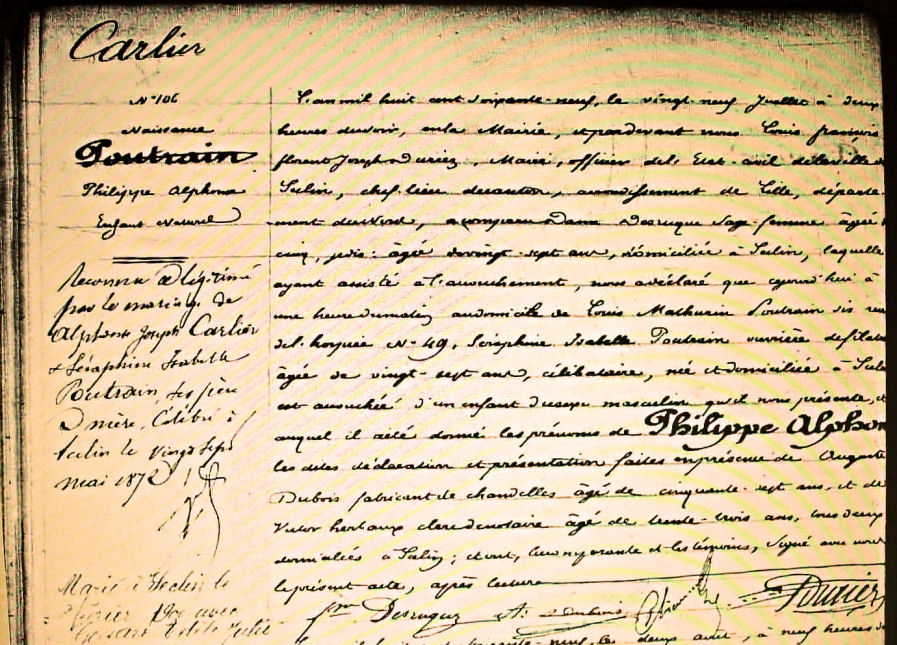 Carlier
N° 106
Naissance
Poutrain
Philippe Alphonse
Enfant Naturel
Reconnu & légitimé
par le mariage de
Alphonse Joseph Carlier
& Séraphine Isabelle
Poutrain, ses père
& mère, célébré à
Seclin le vingt sept
mai 1872
Marié à Seclin le
février avec
L'an mil huit cent soixante-neuf, le vingt-neuf Juillet à deux
heures du soir, en la Mairie, et pardevant nous Louis françois
florent Joseph Duriez, Maire, officier de l'Etat-civil de la ville de
Seclin, chef-lieu de canton, arrondissement de Lille, départe-
ment du Nord, a comparu Dame Desruque Sage-femme âgée
cinq, jadis: âgée de vingt-sept ans, domiciliée à Seclin, laquelle
ayant assisté à l'accouchement, nous a déclaré que cejourd'hui à
une heure du matin au domicile de Louis Mathurin Poutrain sis rue
N° 49, Séraphine Isabelle Poutrain ouvrière de filature
âgée de vingt-sept ans, célibataire, née et domiciliée à Seclin
est accouchée d'un enfant du sexe masculin qu'il nous présente, et
auquel il a été donné les prénoms de Philippe Alphon
les dites déclaration et présentation faites en présence de Auguste
Dubois fabricant de chandelles âgé de cinquante-sept ans, et de
Victor herbaux clerc de notaire âgé de trente-trois ans, tous deux
domiciliés à Seclin; et ont, la comparante et les témoins, signé avec nous
le présent acte, après lecture
fme Desruque A. Dubois Duriez
neuf, le deux août, à neuf heures d